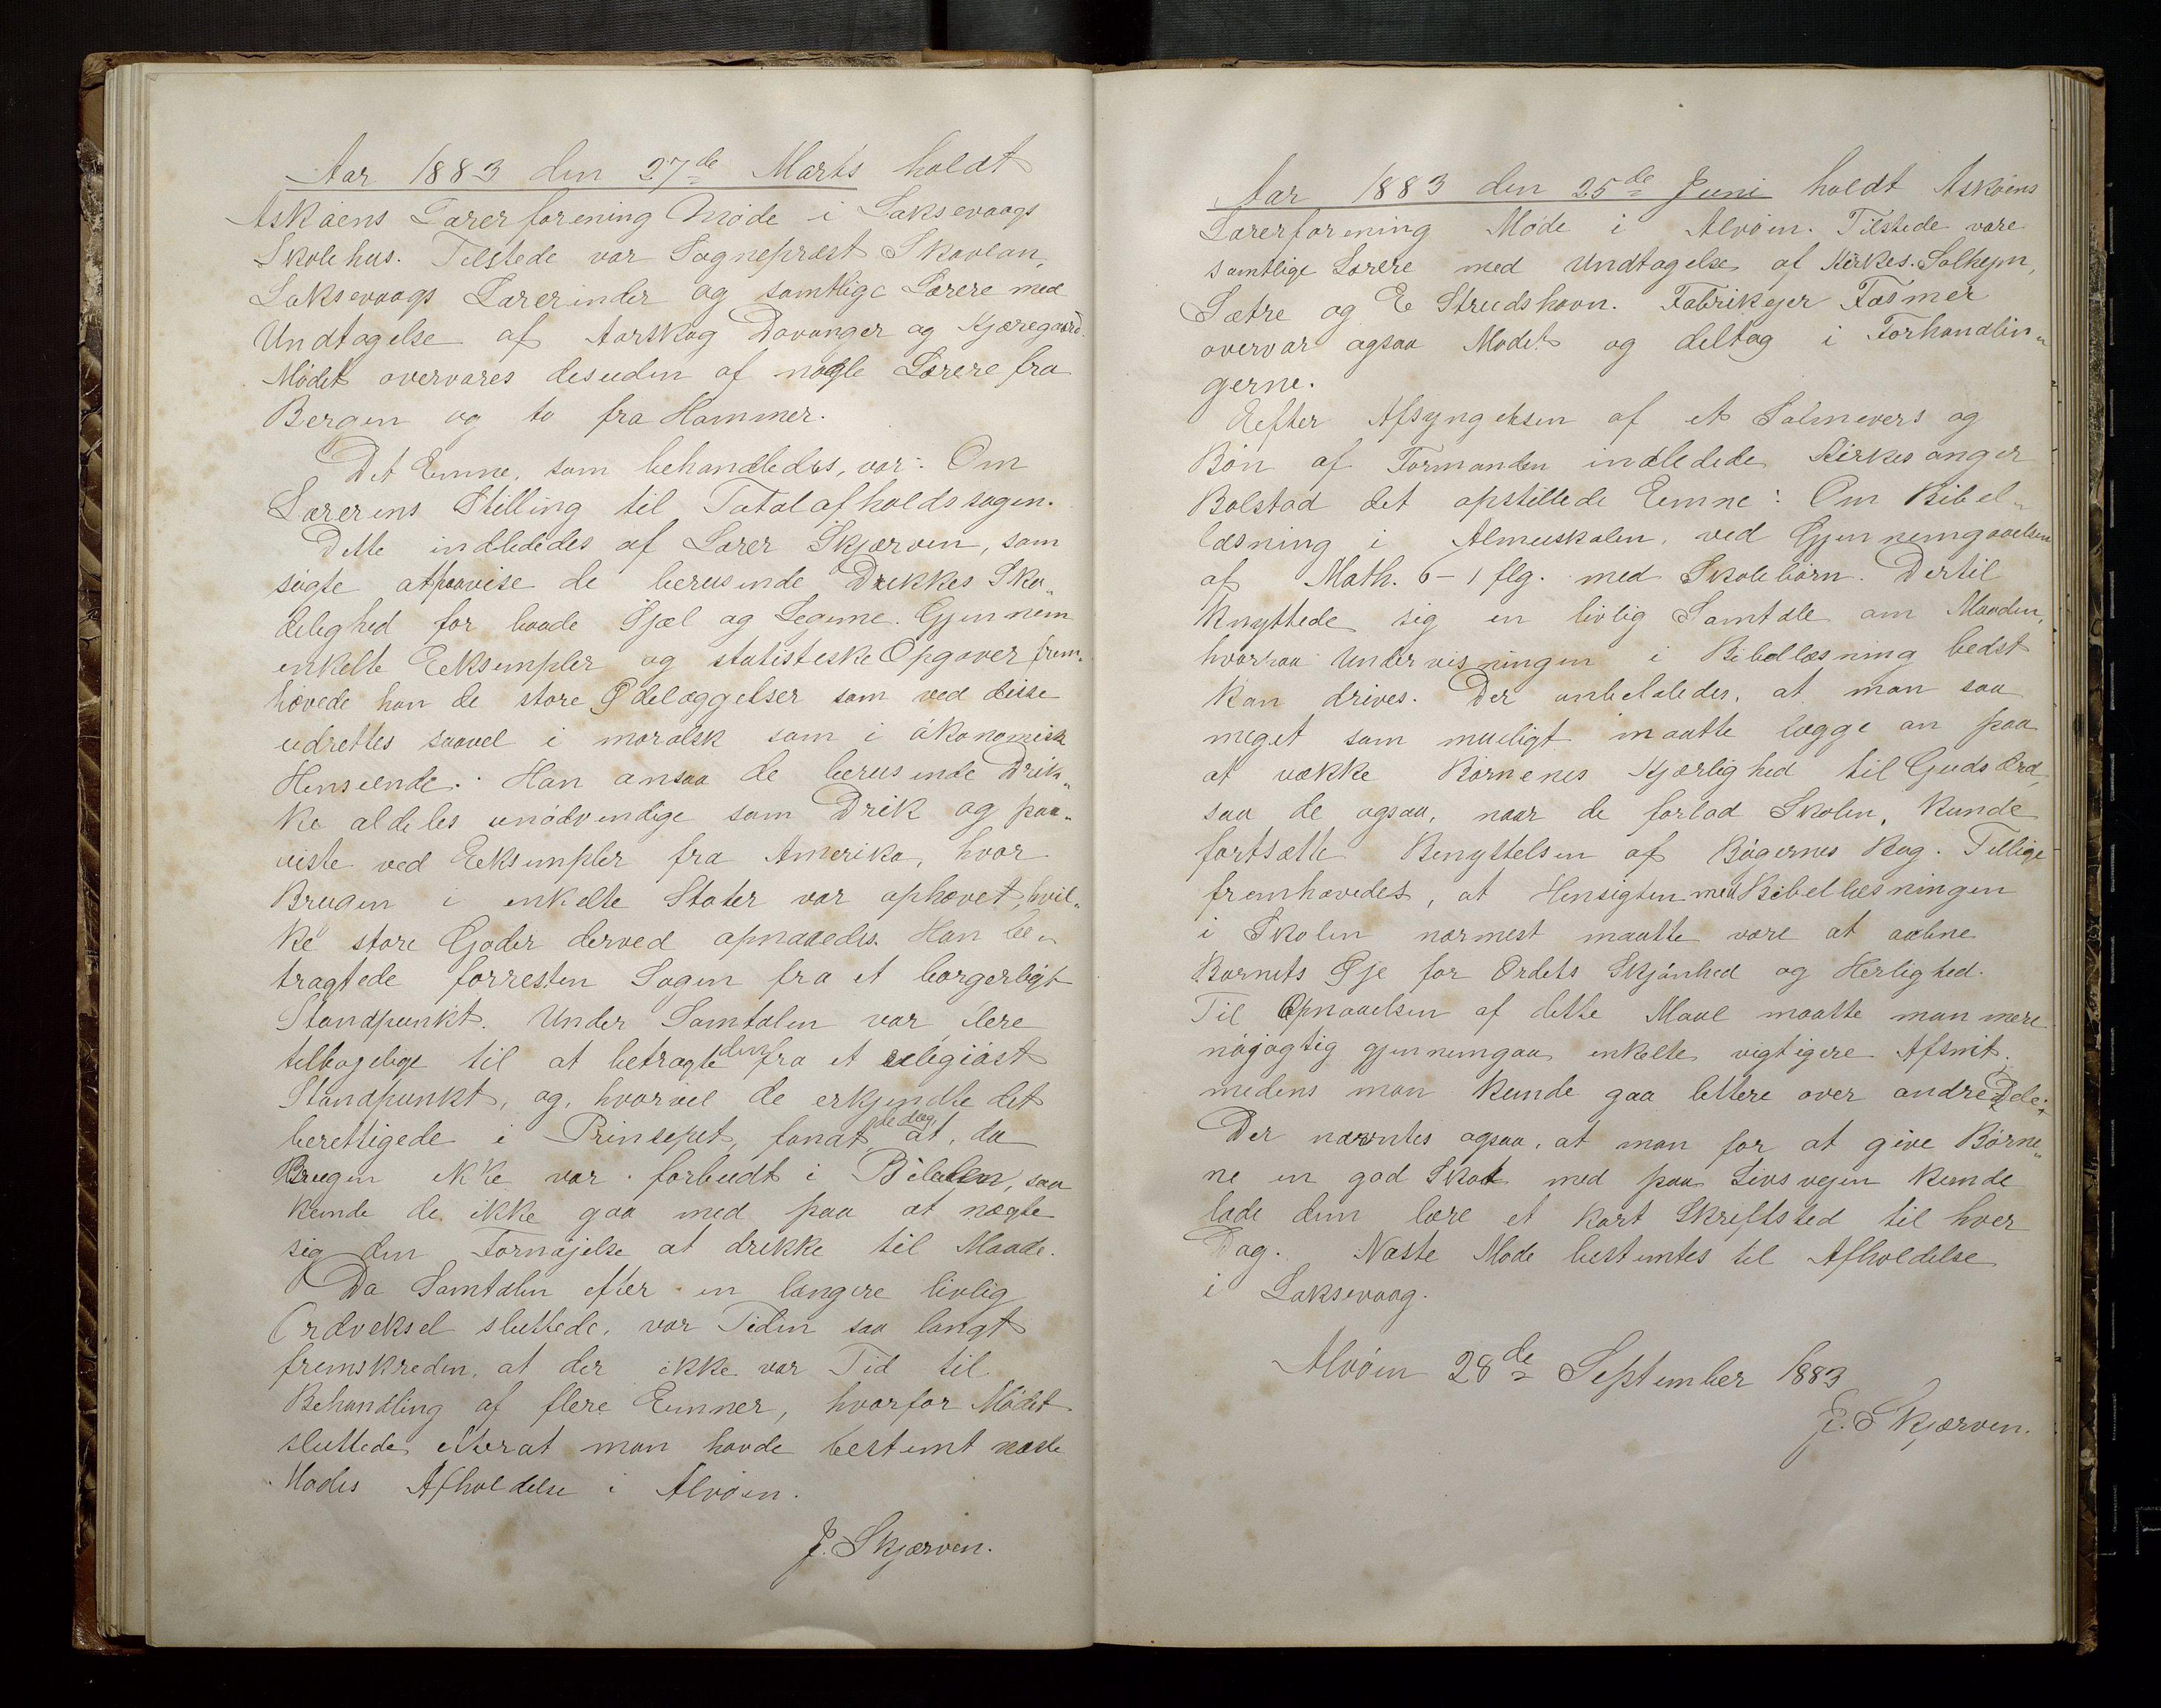 Aar 1883 den 27de Marts holdt
Askøens Lærerforening Møde i Laksevaags
Skolehus. Tilstede var Sognepræst Skavlan,
Laksevaags Lærerinder og samtlige Lærere med
Undtagelse af Aarskog Davanger og Kjæregaard.
Mødet overvares desuden af nogle Lærere fra
Bergen og to fra Hammer.
Det Emne, som behandledes, var: Om
Lærerens Stilling til Totalafholdssagen.
Dette indlededes af Lærer Skjærven, som
søgte at paavise de berusende Drikkes Ska„
delighed for baade Sjæl og Legeme. Gjennem
enkelte Eeksempler og statistiske Opgaver frem„
hævede han de store Ødelæggelser som ved disse
udrettes saavel i moralsk som i økonomisk
Henseende. Han ansaa de berusende Drik„
ke aldeles unødvendige som Drik og paa„
viste ved Eeksempler fra Amerika, hvor
Brugen i enkelte Stater var ophævet, hvil„
ke store Goder derved opnaaedes. Han be„
tragtede forresten Sagen fra et borgerligt
Standpunkt. Under Samtalen var flere
tilbøjelige til at betragte den fra et religiøst
Standpunkt, og, hvorvel de erkjendte det
berettigede i Prinsepet, fandt de dog, at, da
Brugen ikke var forbudt i Bibelen, saa
kunde de ikke gaa med paa at nægte
sig den Fornøjelse at drikke til Maade.
Da Samtalen efter en længere livlig
Ordveksel sluttede, var Tiden saa langt
fremskreden, at der ikke var Tid til
Behandling af flere Emner, hvorfor Mødet
sluttede efterat man havde bestemt næste
Mødes Afholdelse i Alvøen.
J. Skjærven.
Aar 1883 den 25de Juni holdt Askøens
Lærerforening Møde i Alvøen. Tilstede vare
samtlige Lærere med Undtagelse af Kirkes. Solhejm,
Sætre og E Strudshavn. Fabrikejer Fasmer
overvar ogsaa Mødet og deltog i Forhandlin„
gerne.
Eefter Afsyngelsen af et Salmevers og
Bøn af Formanden indledede Kirkesanger
Bolstad det opstillede Eemne: Om Bibel„
læsning i Almueskolen, ved Gjennemgaaelsen
af Math. 6-1 flg. med Skolebørn. Dertil
knyttede sig en livlig Samtale om Maaden,
hvorpaa Undervisningen i Bibellæsning bedst
kan drives. Der anbefaledes, at man saa
meget som mueligt maatte lægge an paa
at vække Børnenes Kjærlighed til Guds Ord,
saa de ogsaa, naar de forlod Skolen, kunde
fortsætte Benyttelsen af Bøgernes Bog. Tillige
fremhævedes, at Hensigten med Bibellæsningen
i Skolen nærmest maatte være at aabne
Barnets Øje for Ordets Skjønhed og Herlighed.
Til Opnaaelsen af dette Maal maatte man mere
nøjagtig gjennemgaa enkelte vigtigere Afsnit,
medens man kunde gaa lettere over andre Dele.
Der nævntes ogsaa, at man for at give Børne„
ne en god Skat med paa Livsvejen kunde
lade dem lære et kort Skriftsted til hver
Dag. Næste Møde bestemtes til Afholdelse
i Laksevaag.
Alvøen 28de September 1883
J. Skjærven.